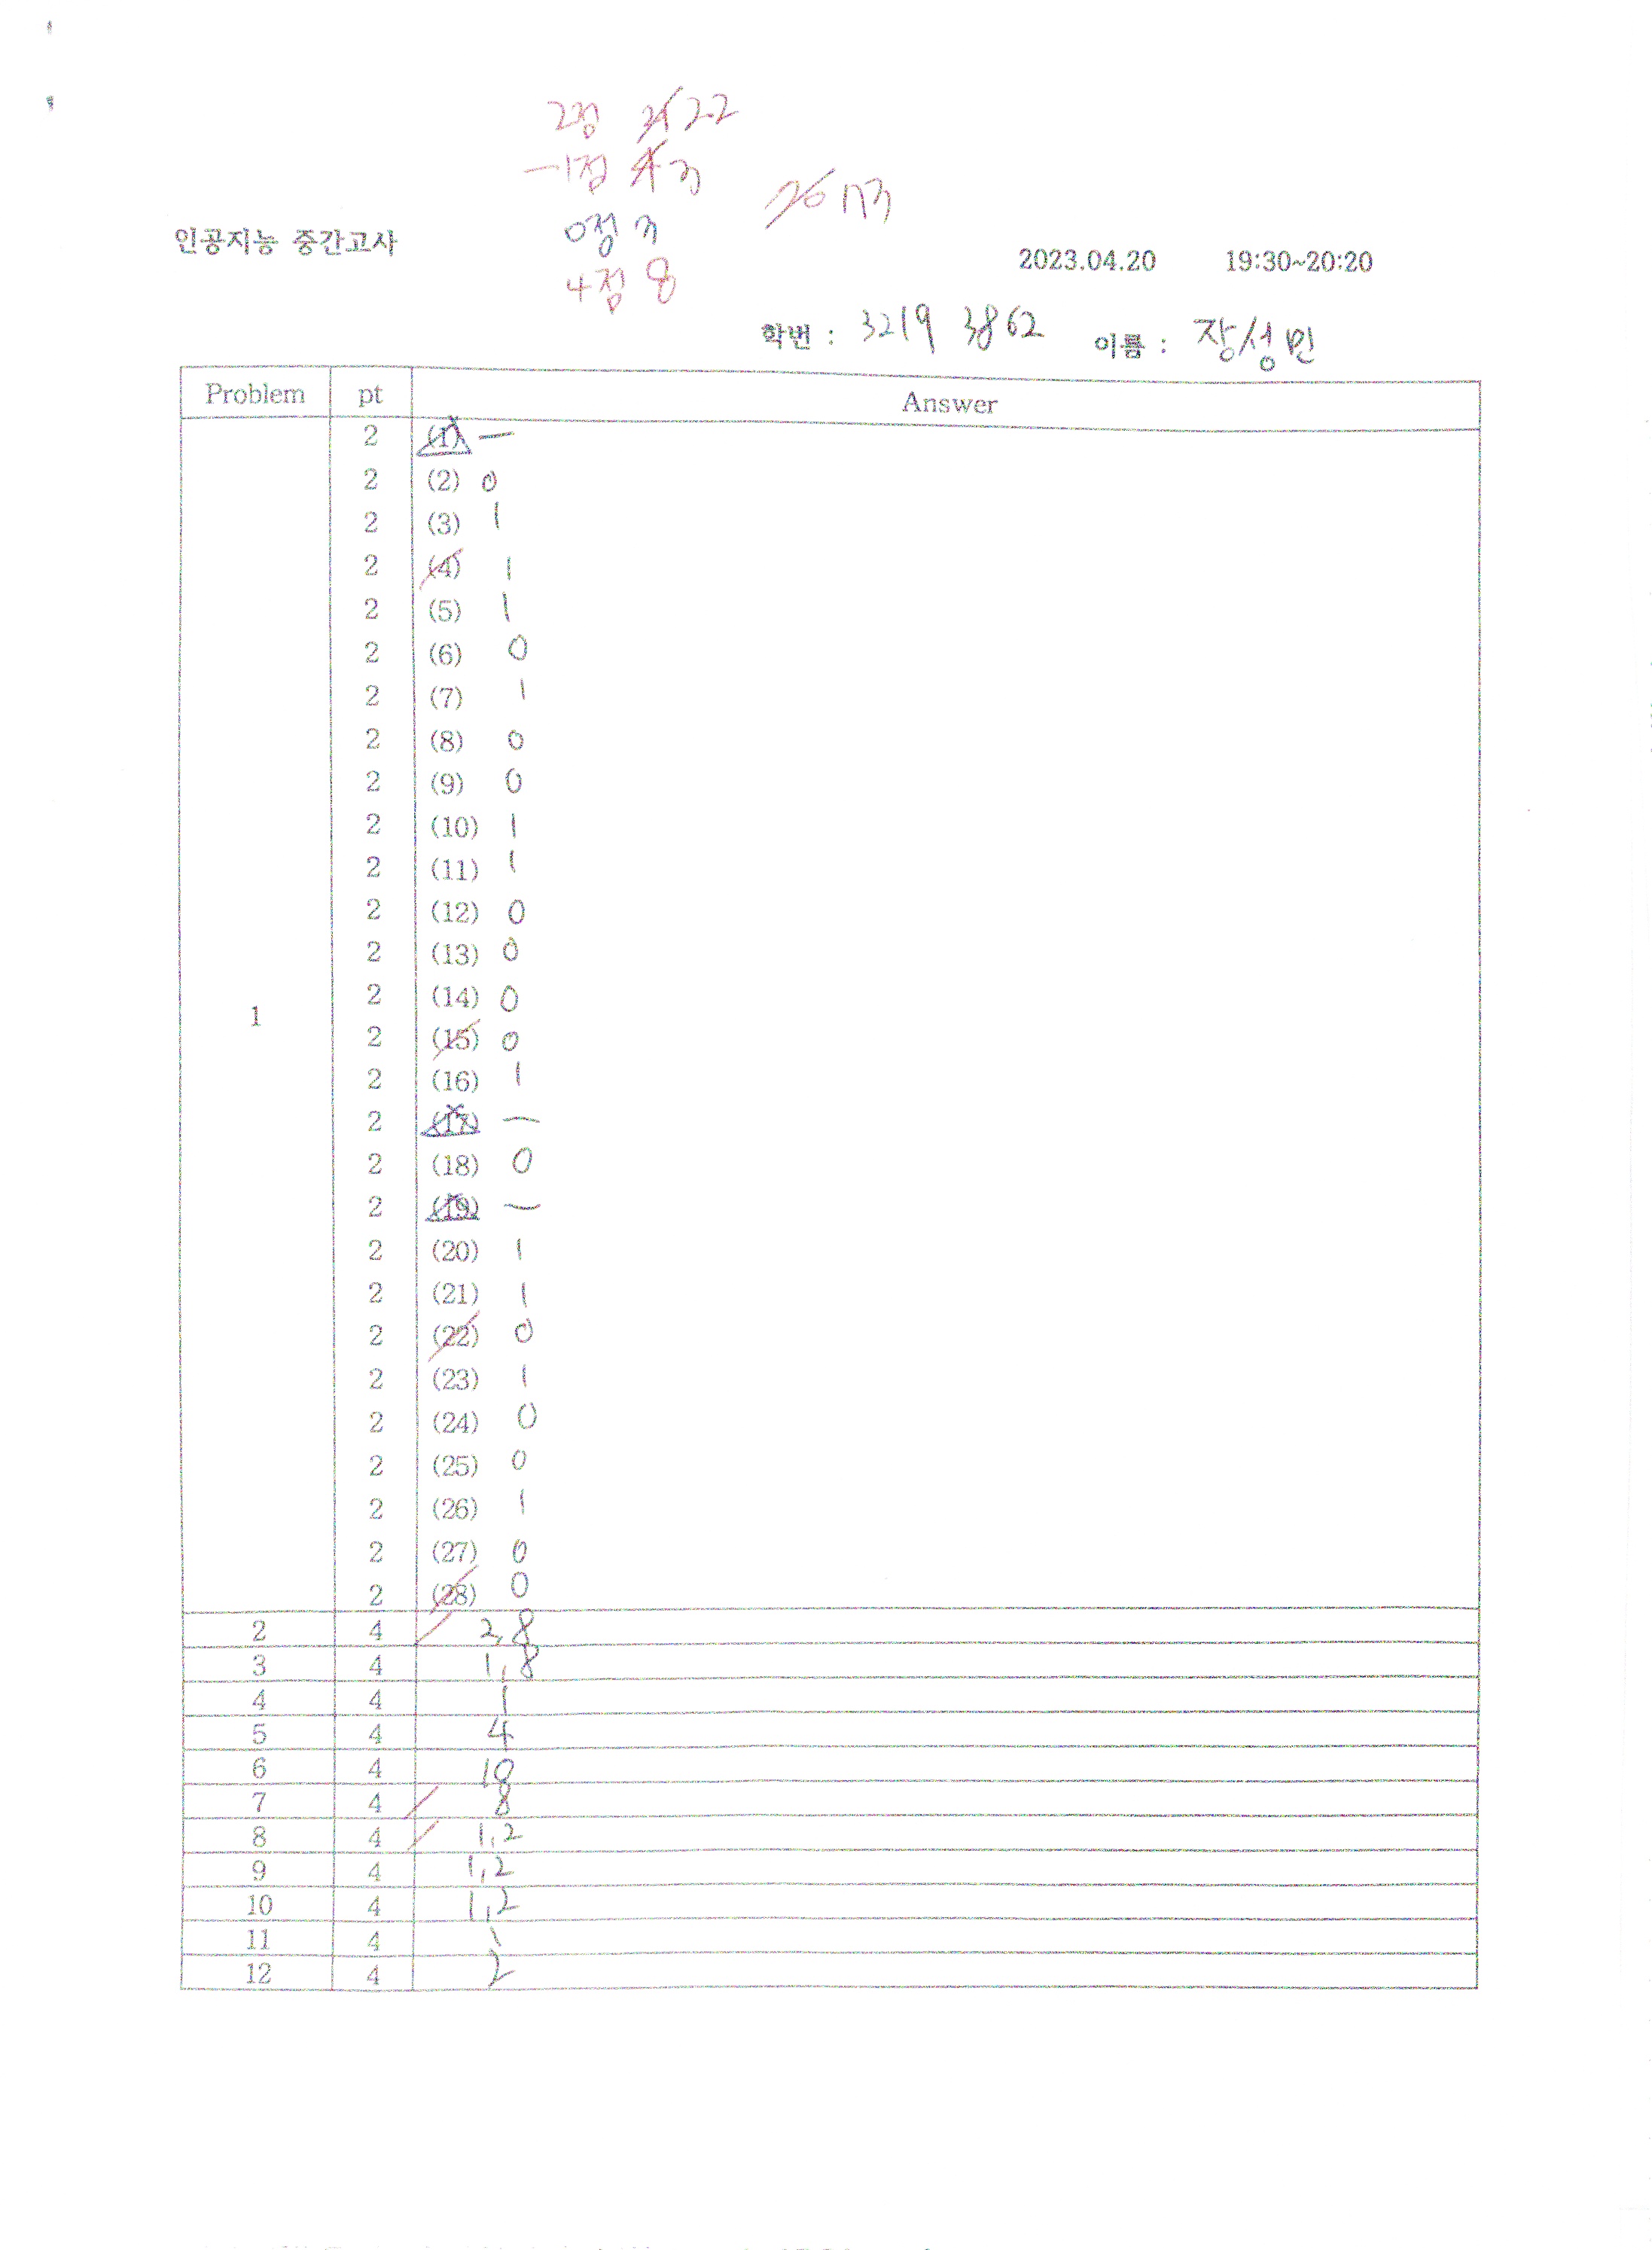 2점 22
-1점 3
0점 3
4점 8
인공지능 중간고사
2023.04.20 19:30~20:20
학번 : 3219 3862 이름 : 장성민
Problem pt Answer
1
2 (1) —
2 (2) 0
2 (3) 1
2 (4) 1
2 (5) 1
2 (6) 0
2 (7) 1
2 (8) 0
2 (9) 0
2 (10) 1
2 (11) 1
2 (12) 0
2 (13) 0
2 (14) 0
2 (15) 0
2 (16) 1
2 (17) —
2 (18) 0
2 (19) —
2 (20) 1
2 (21) 1
2 (22) 0
2 (23) 1
2 (24) 0
2 (25) 0
2 (26) 1
2 (27) 0
2 (28) 0
2 4 2,8
3 4 1,8
4 4 1
5 4 4
6 4 18
7 4 8
8 4 1,2
9 4 1,2
10 4 1,2
11 4 1
12 4 2